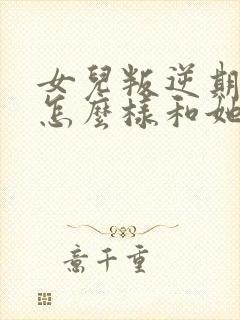 女兒叛逆期
怎麼樣和她
意千重